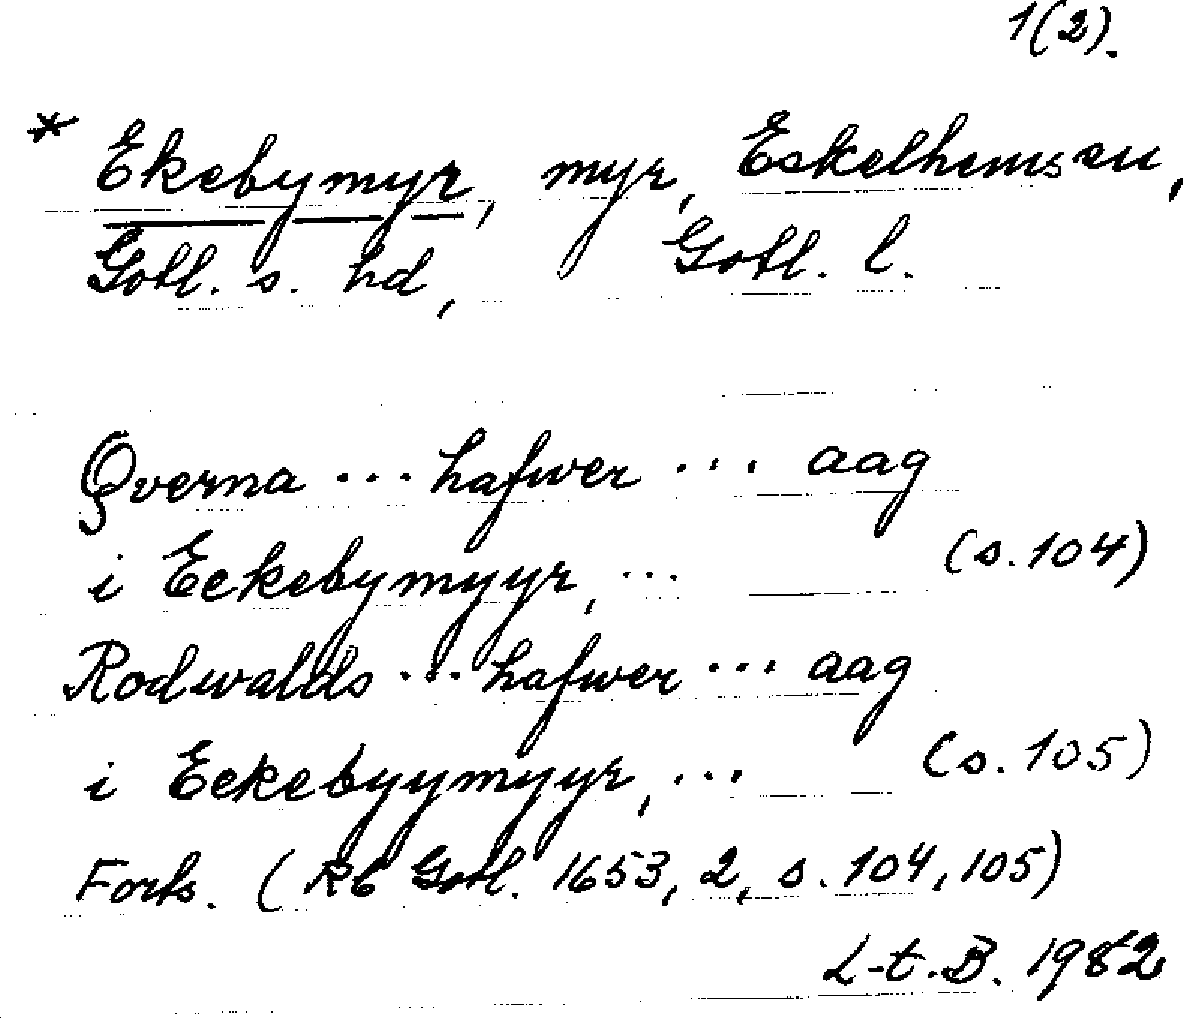 1(2).
* Ekebymyr, myr, Eskelhems sn,
Gotl. s. hd, Gotl. l.
Qverna ... hafwer ... aag
i Eckebymyyr, ... (s. 104)
Rodwalds ... hafwer ... aag
i Eckebyymyyr, ... (s. 105)
Forts. (Rb Gotl. 1653, 2, s. 104, 105)
L-t. B. 1982